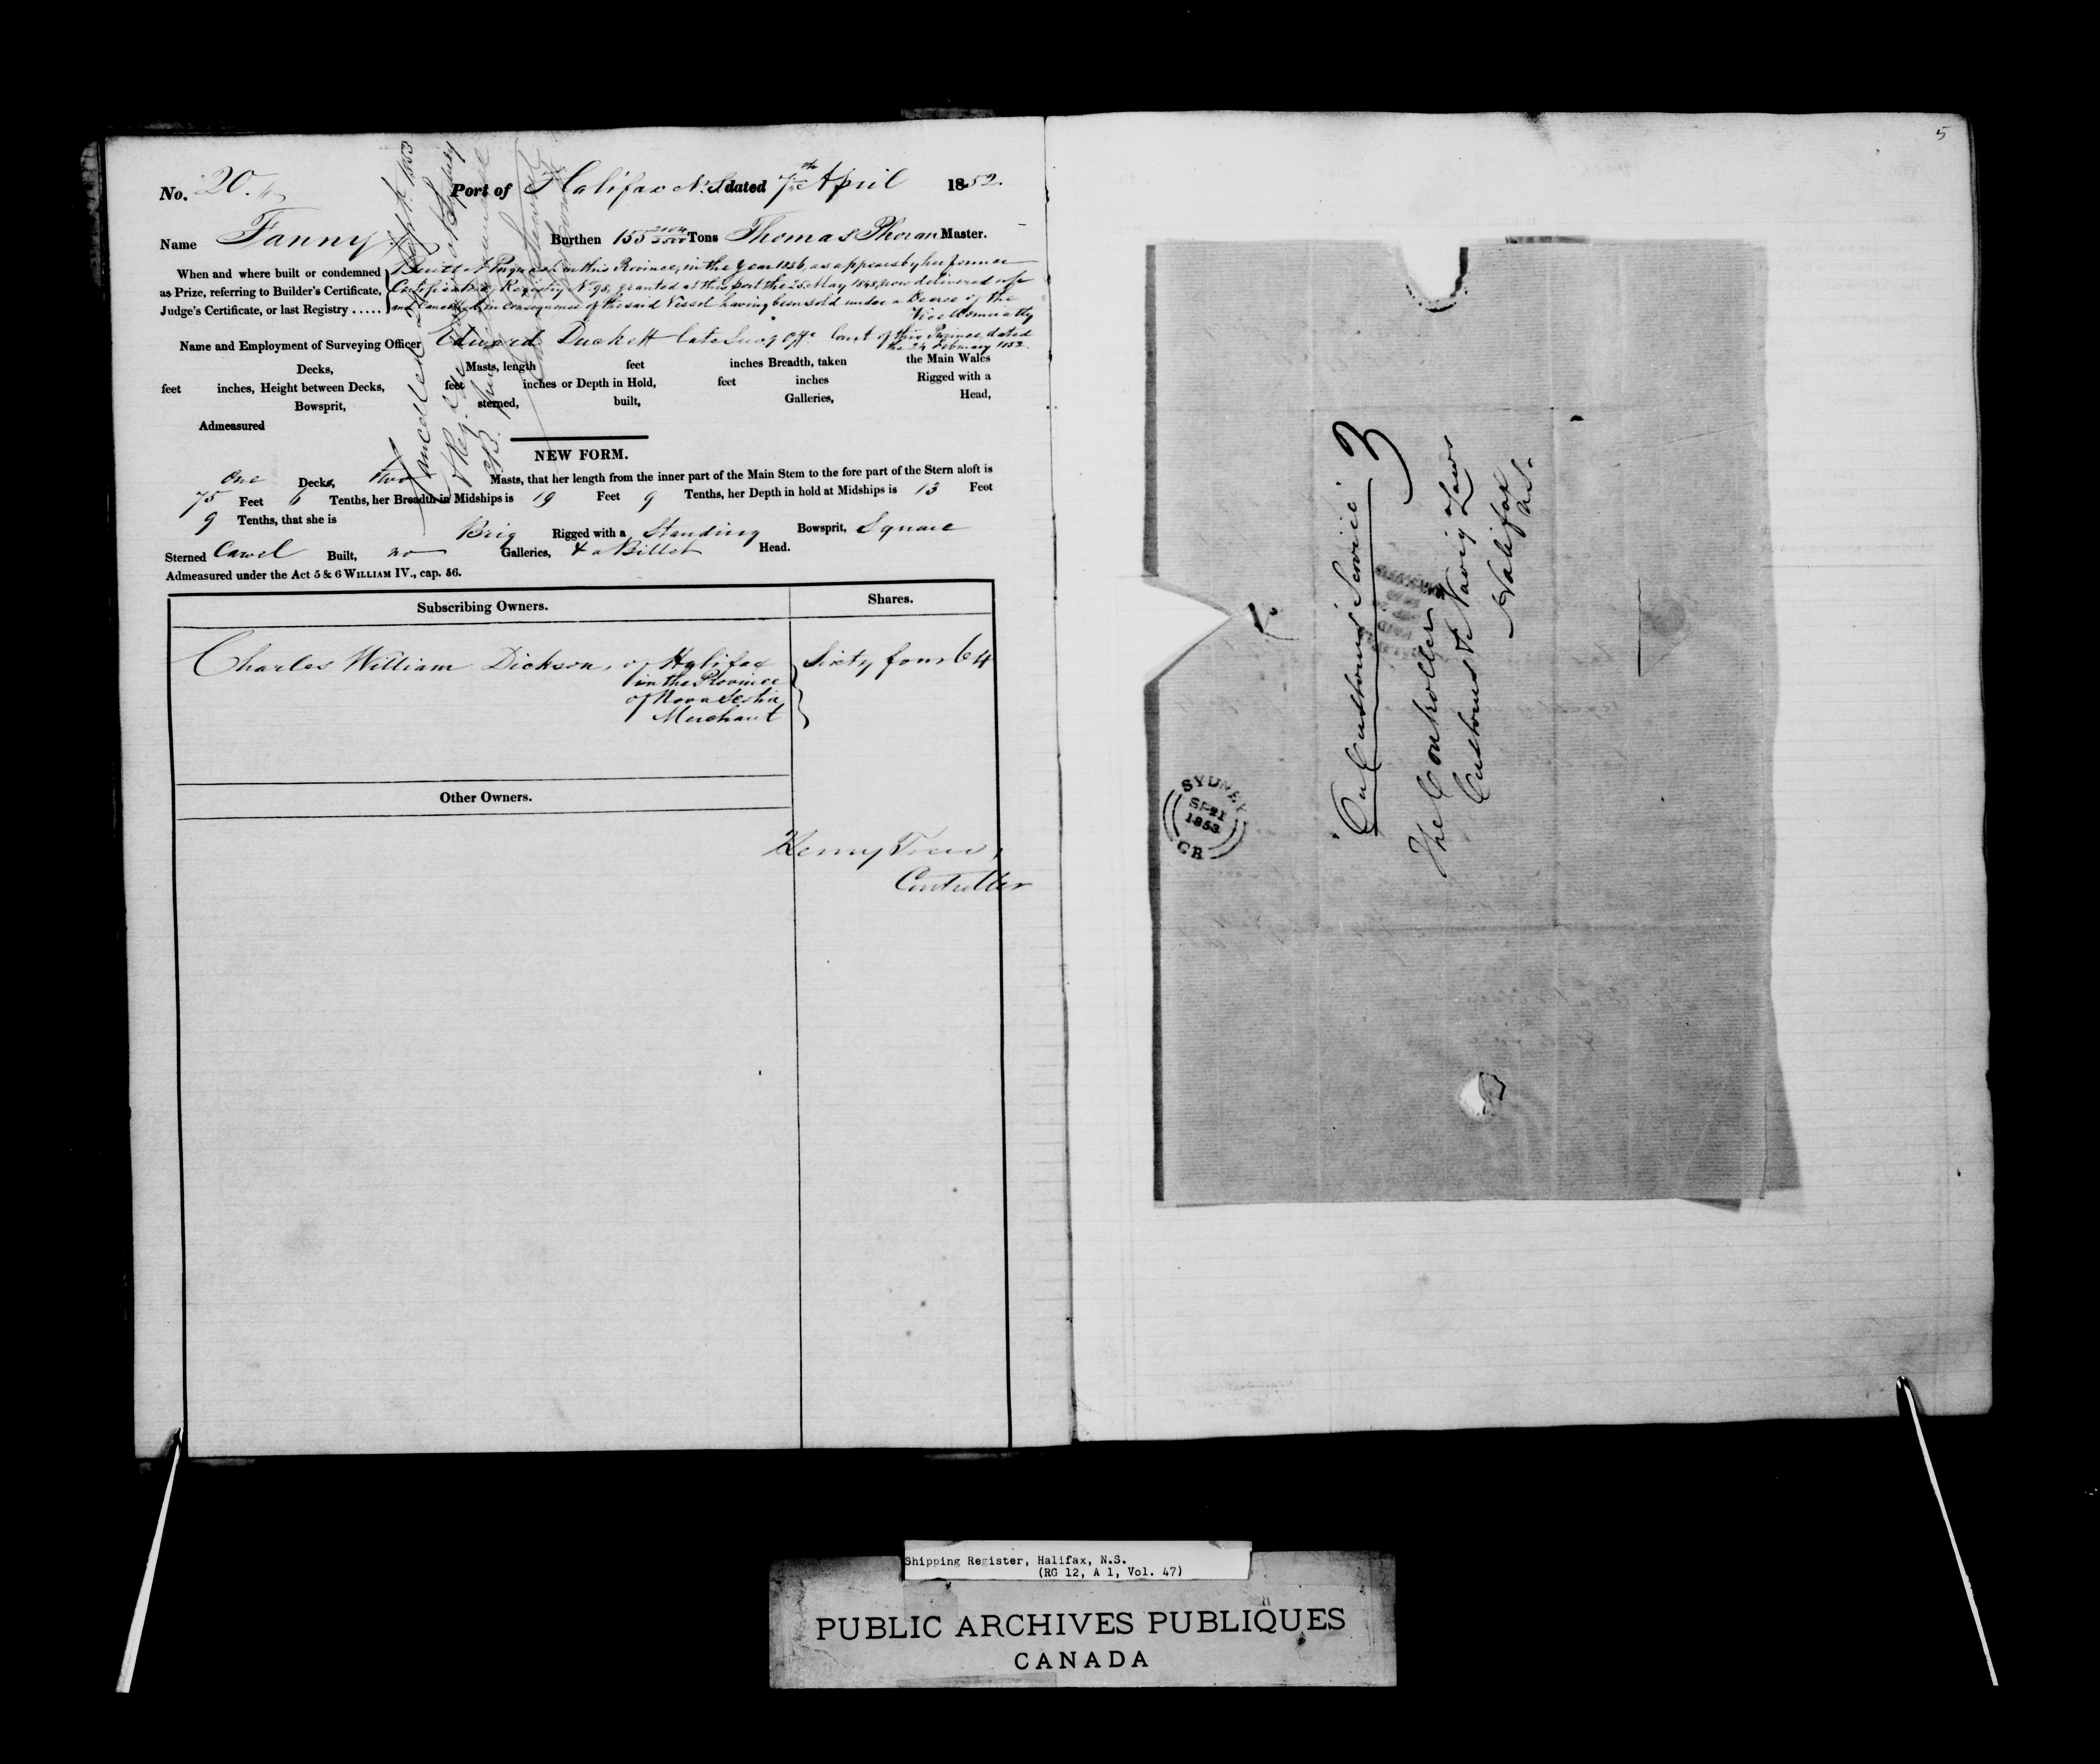 No. 20. Port of Halifax N.S. dated 7th April 1852.
Name Fanny Burthen 155 2104/3500 Tons Thomas Phoran Master.
When and where built or condemned
as Prize, referring to Builder's Certificate,
Judge's Certificate, or last Registry .....
Built at Pugwash in this Province, in the Year 1836, as appears by her former
Certificate of Registry No 98, granted at this port the 25 May 1848, now delivered up
and Cancelled, in consequence of the said Vessel having been sold under a Decree of the
Vice Admiralty
Court of this Province, dated
the 24 February 1852.
Name and Employment of Surveying Officer Edward Duckett late Survg Offr
Decks, Masts, length feet inches Breadth, taken the Main Wales
feet inches, Height between Decks, feet inches or Depth in Hold, feet inches Rigged with a
Bowsprit, sterned, built, Galleries, Head,
Admeasured
Cancelled Septr. 1853
NEW FORM.
One Decks, two Masts, that her length from the inner part of the Main Stem to the fore part of the Stern aloft is
75 Feet 6 Tenths, her Breadth in Midships is 19 Feet 9 Tenths, her Depth in hold at Midships is 13 Feet
9 Tenths, that she is Brig Rigged with a Standing Bowsprit, Square
Sterned Carvel Built, no Galleries, & a Billet Head.
Admeasured under the Act 5 & 6 WILLIAM IV., cap. 56.
Subscribing Owners. Shares.
Charles William Dickson, of Halifax Sixty four 64
in the Province
of Nova Scotia
Merchant
Other Owners.
Henry Trew,
Controller
5
On Customs Service
3
The Controller
Customs & Navig Laws
Halifax
N.S.
SYDNEY
SP 21
1853
CB
Shipping Register, Halifax, N.S.
(RG 12, A 1, Vol. 47)
PUBLIC ARCHIVES PUBLIQUES
CANADA